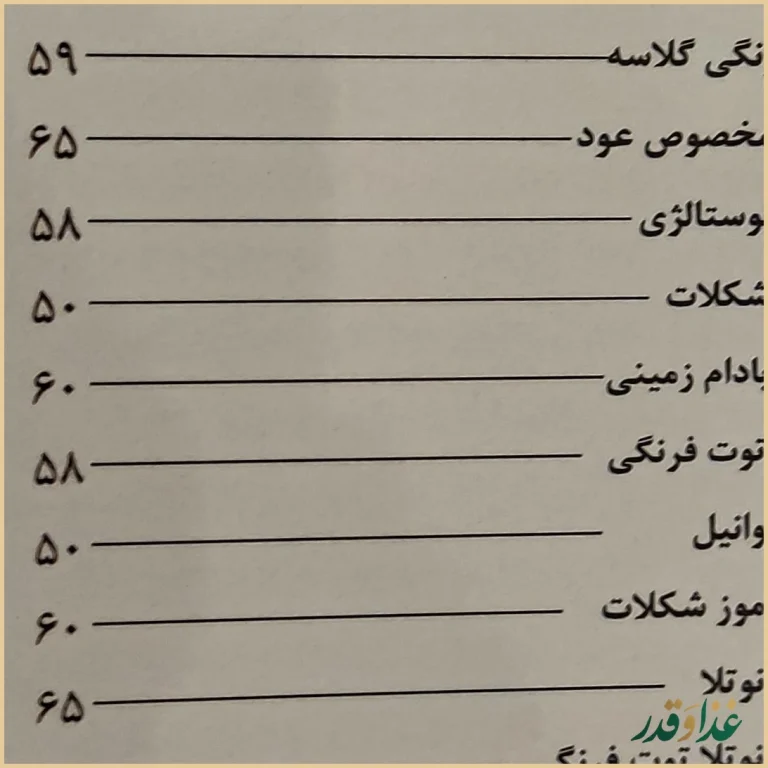 نگی گلاسه ۵۹
مخصوص عود ۶۵
وستالژی ۵۸
شکلات ۵۰
بادام زمینی ۶۰
توت فرنگی ۵۸
وانیل ۵۰
موز شکلات ۶۰
نوتلا ۶۵
غذا و قدر
نوتلا توت فرنگی